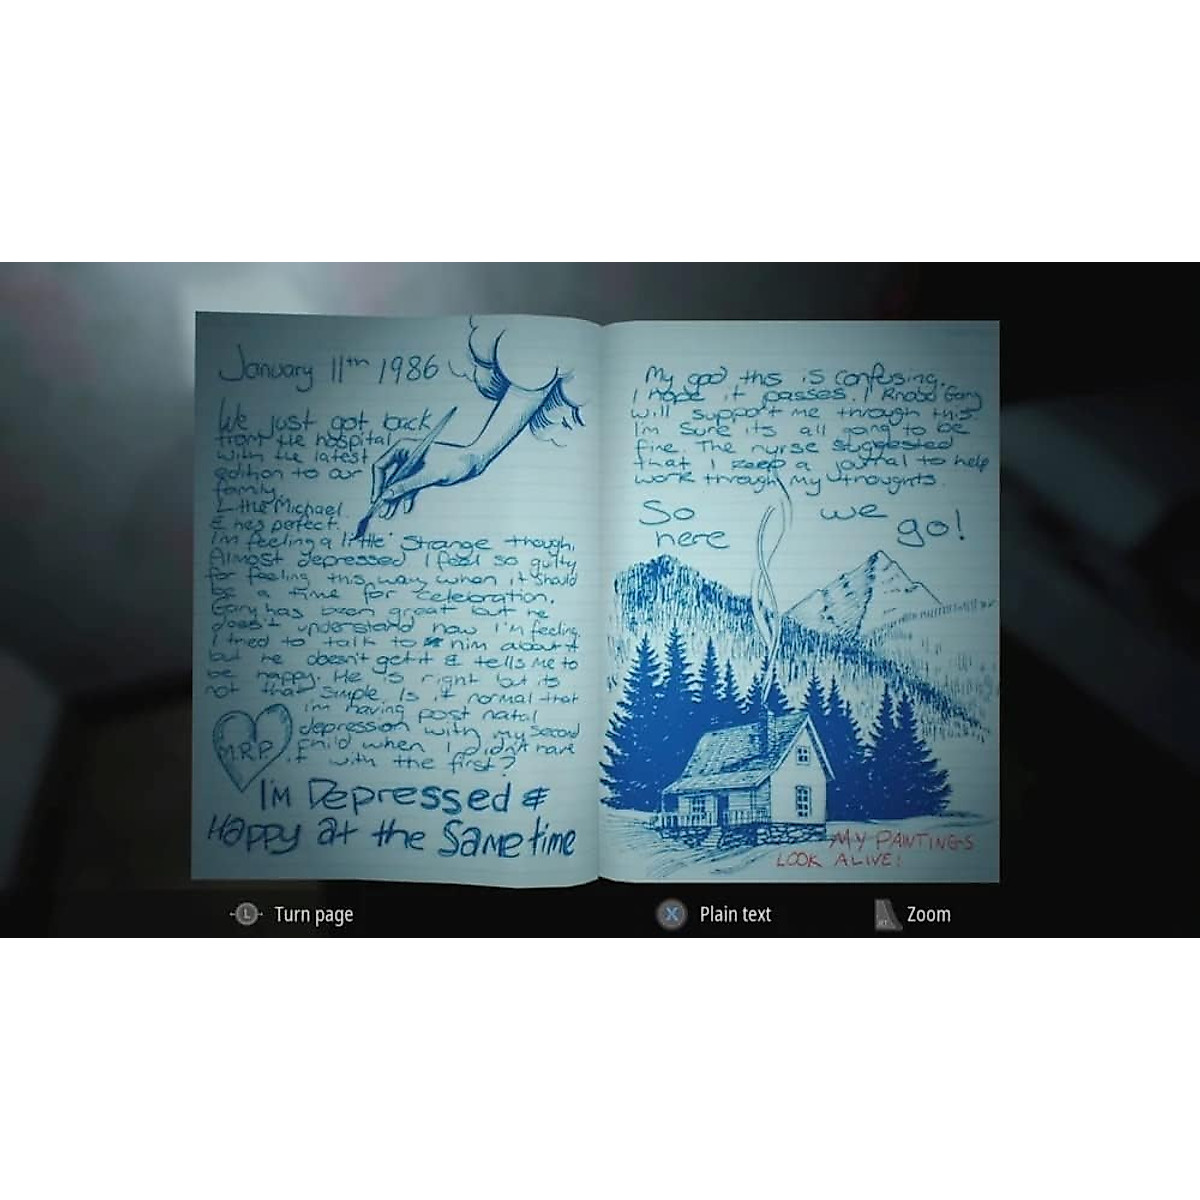 January 11th 1986
We just got back
from the hospital
with the latest
edition to our
family.
Little Michael
& he's perfect.
I'm feeling a little strange though.
Almost depressed I feel so guilty
for feeling this way when it should
be a time for celebration.
Gary has been great but he
doesn't understand how I'm feeling
I tried to talk to him about it
but he doesn't get it & tells me to
be happy. He is right but its
not that simple. Is it normal that
i'm having post natal
depression with my second
child when I didn't have
it with the first?
M.R.P.
I'm Depressed &
Happy at the Same time
My god this is confusing.
I hope it passes. I know Gary
will support me through this.
I'm sure its all going to be
fine. The nurse suggested
that I keep a journal to help
work through my thoughts.
So we
here go!
MY PAINTINGS
LOOK ALIVE!
L Turn page
X Plain text
RT Zoom